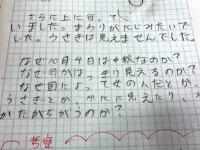 さらに上に行って、
いました。まわりがにじみたいで
した。うさぎは見えませんでした。
なぜ10月4日は半秋なのか?
なぜ月がはっきり見えるのか?
なぜ国によってせのんだとか、
うさぎとか、かにに見えたり、
かたちがちがうのか?
考察